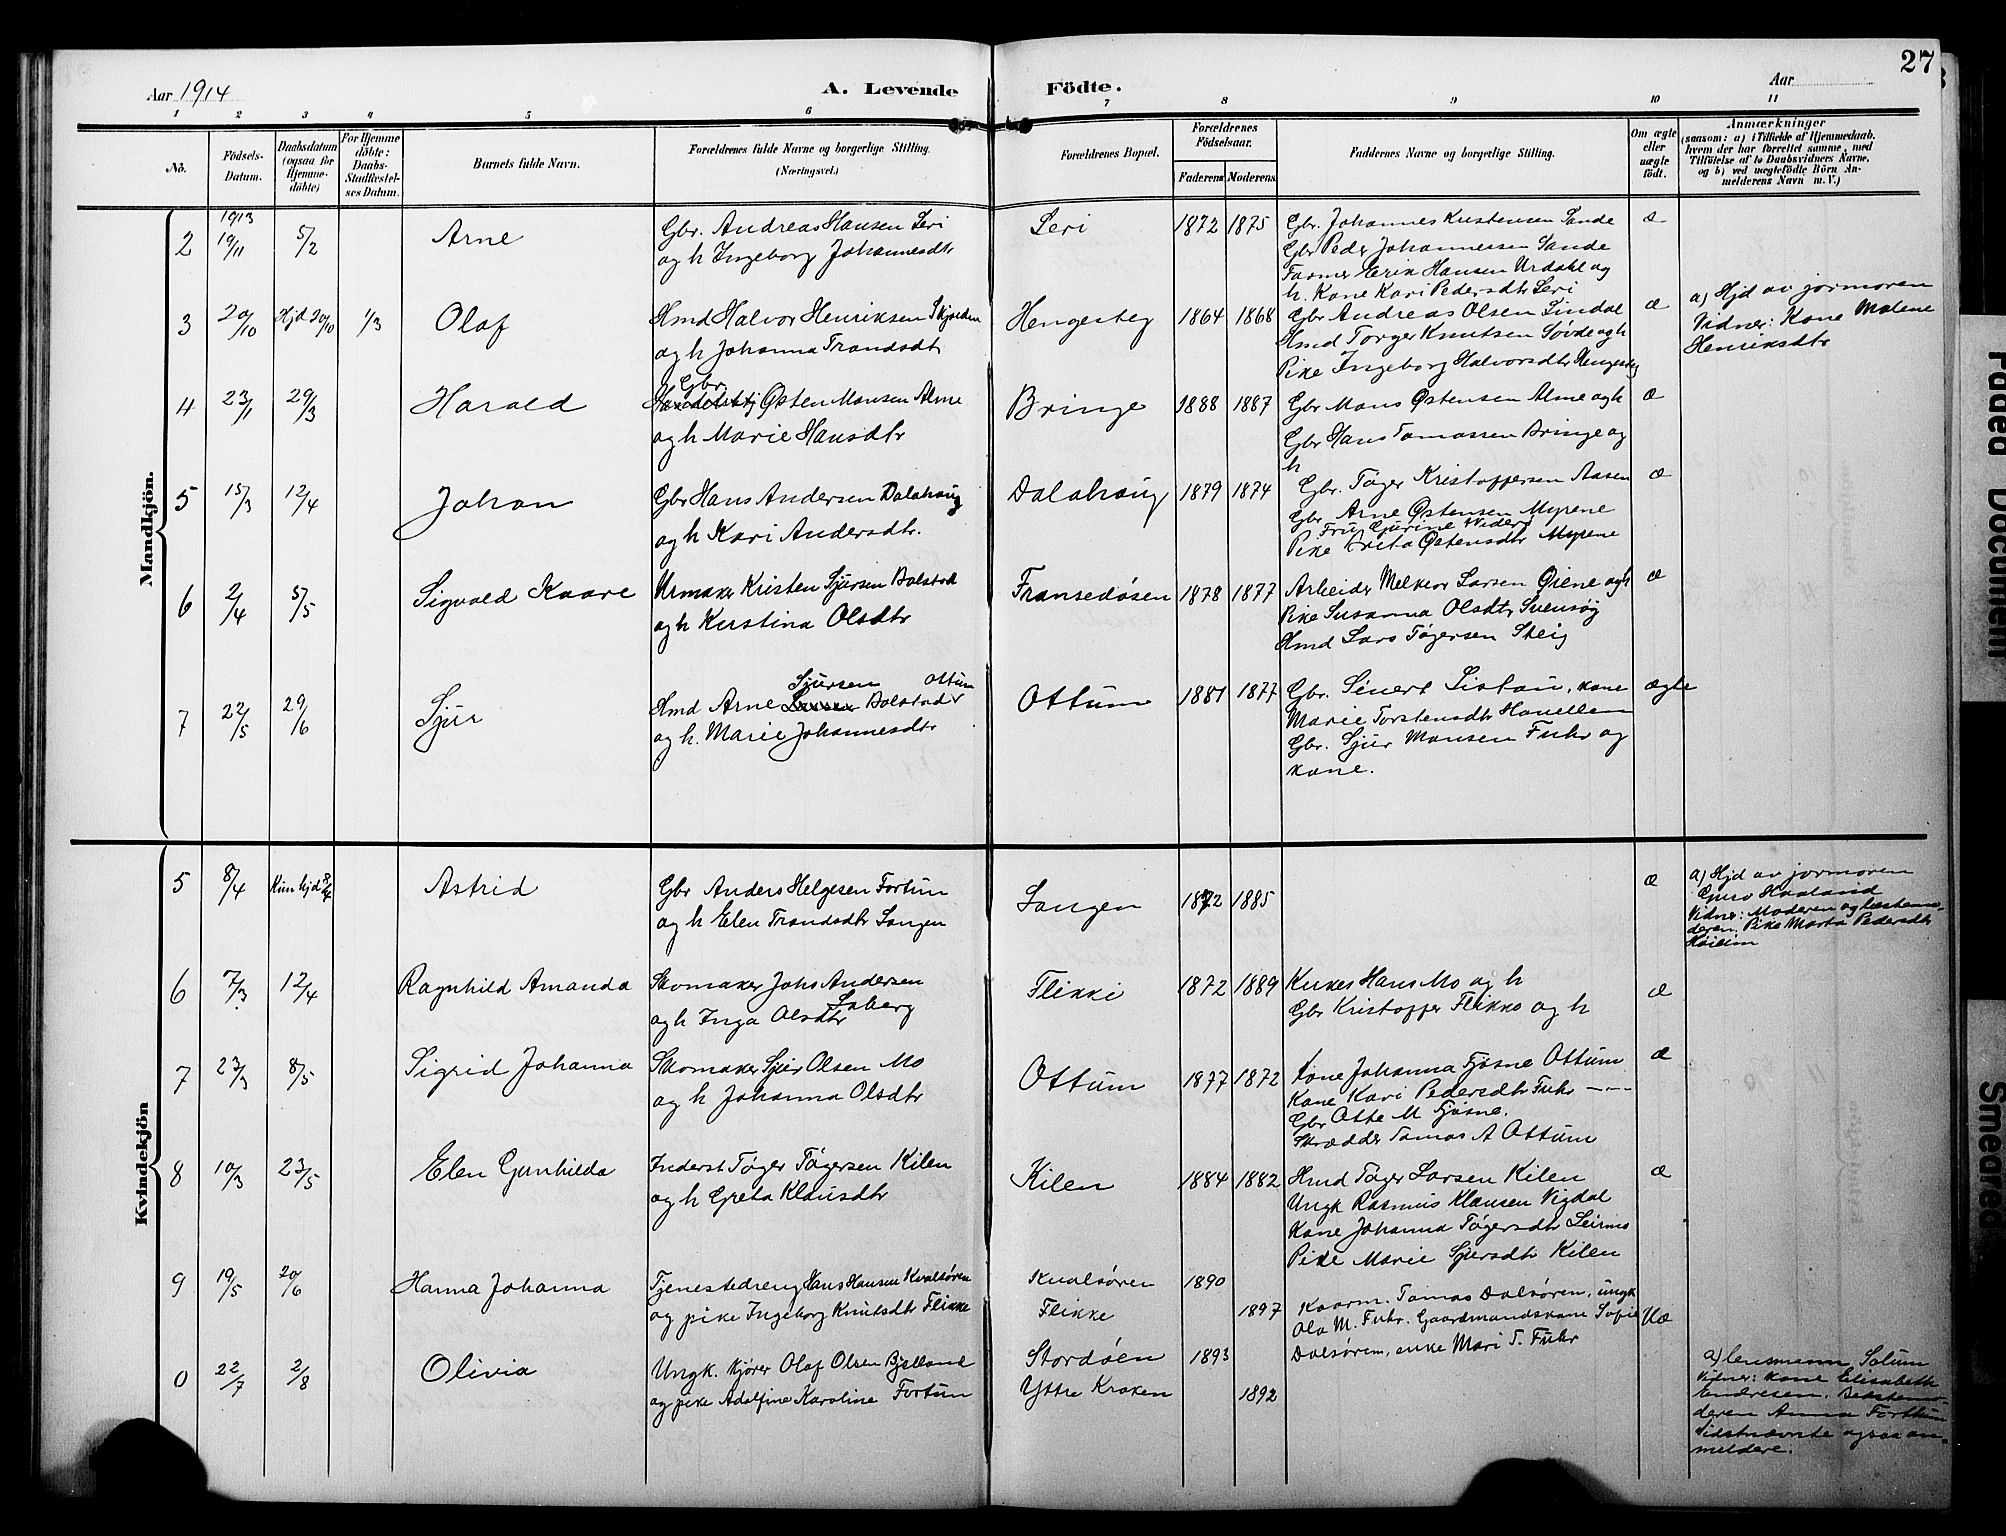 27
Aar 1914 A. Levende Födte. Aar
1 2 3 4 5 6 7 8 9 10 11
No.
Födsels-
Datum.
Daabsdatum
(ogsaa for
Hjemme-
döbte)
For Hjemme
döbte:
Daabs-
Stadfæstel-
ses Datum.
Barnets fulde Navn.
Forældrenes fulde Navne og borgerlige Stilling.
(Næringsvei.)
Forældrenes Bopæl.
Forældrenes
Födselsaar.
Faderens Moderens
Faddernes Navne og borgerlige Stilling.
Om ægte
eller
uægte
födt.
Anmærkninger
(saasom: a) i Tilfælde af Hjemmedaab,
hvem der har forrettet samme, med
Tilföielse af to Daabsvidners Navne,
og b) ved uægtefödte Börn An-
melderens Navn m. V.)
Mandkjön.
2 1913 19/11 5/2 Arne
Gbr. Andreas Hansen Leri
og h Ingeborg Johannesdtr
Leri 1872 1875
Gbr. Johannes Kristensen Sande
Gbr Peder Johannesen Sande
Farmer Erik Hansen Urdahl og
h. Kone Kari Pedersdtr Leri
æ
3 20/10 Hjd 20/10 1/3 Olaf
Hmd Halvor Henriksen Skjolden
og h Johanna Trondsdtr
Hengesteg 1864 1868
Gbr Andreas Olsen Lindal
Hmd Torger Knutsen Søvde og h
Pike Ingeborg Halvorsdtr Hengesteg
æ
a) Hjd av jormoren
Vidner: Kone Malene
Henriksdtr
4 23/1 29/3 Harald
Gbr.
Østen Monsen Alme
og h Marie Hansdtr
Bringe 1888 1887
Gbr Mons Østensen Alme og h
Gbr Hans Tomassen Bringe og
h
æ
5 15/3 12/4 Johan
Gbr Hans Andersen Dalahaug
og h Kari Andersdtr.
Dalahaug 1879 1874
Gbr. Tøger Kristoffersen Aasen
Gbr Arne Østensen Myrene
Fru Gjurine Wider
Pike Brita Østensdtr Myrene
æ
6 2/4 5/5 Sigvald Kaare
Urmaker Kristen Sjursen Bolstad
og h Kristina Olsdtr
Fransedøsen 1878 1877
Arbeider Melkior Larsen Øiene og h
Pike Susanna Olsdtr Svensøy
Hmd Lars Tøgersen Steig
æ
7 22/5 29/6 Sjur
Sjursen Ottum
Hmd Arne Larsen Bolstad
og h. Marie Johannesdtr
Ottum 1881 1877
Gbr. Sivert Listau, kone
Marie Torstensdtr Havellen
Gbr. Sjur Monsen Fuhr og
kone.
ægte
Kvindekjön
5 8/4 Kun hjd 8/4 Astrid
Gbr Anders Helgesen Fortun
og h Elen Trondsdtr Langen
Langen 1872 1885
æ
a) Hjd av jormoren
Guro Haaland
Vidner: Moderen og bestemo-
deren. Pike Marta Pedersdtr
6 7/3 12/4 Ragnhild Amanda
Skomaker Johs Andersen
Laberg
og h Inga Olsdtr
Flikki 1872 1889
Kirkes Hans Mo og h
Gbr Kristoffer Flikke og h
æ
7 23/3 8/5 Sigrid Johanna
Skomaker Sjur Olsen Mo
og h Johanna Olsdtr
Ottum 1877 1872
Kone Johanna Fjøsne Ottum
Kone Kari Pedersdtr Fuhr -"-
Gbr Otte M Fjøsne.
Skrædder Tomas A Ottum
æ
8 10/3 23/5 Elen Gunhilda
Inderst Tøger Tøgersen Kilen
og h Greta Klausdtr
Kilen 1884 1882
Hmd Tøger Larsen Kilen
Ungk Rasmus Klausen Vigdal
Kone Johanna Tøgersdtr Leirmo
Pike Marie Sjursdtr Kilen
æ
9 19/5 20/6 Hanna Johanna
Tjenestedreng Hans Hansen Kvalsøren
og pike Ingeborg Knutsdtr Flikke
Kvalsøren 1890
Flikke 1897
Kaarm. Tomas Dalsøren, ungk
Ola M. Fuhr. Gaardmandskone Sofie
Dalsøren, enke Mari T. Fuhr
Uæ
0 22/7 2/8 Olivia
Ungk. kjører Olaf Olsen Bjelland
og pike Adolfine Karoline Fortun
Stordøen 1893
Yttre Kroken 1892
a) lensmann Solum
Vidner: kone Elisabeth
Endresen. Bedstemo-
deren Anna Forthun
Sidstnævnte ogsaa an-
meldere.
Faded Document
Smeared